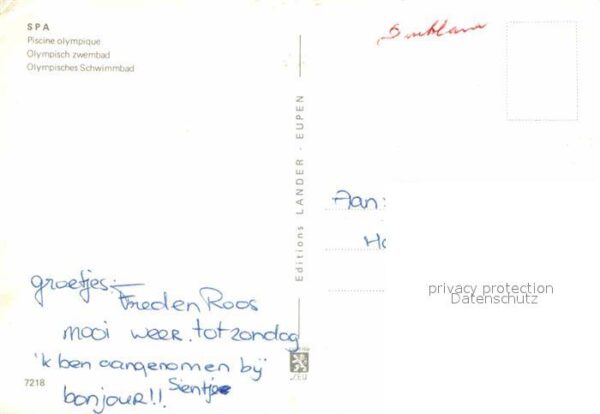 SPA
Piscine olympique
Olympisch zwembad
Olympisches Schwimmbad
Editions LANDER - EUPEN
Aan:
privacy protection
Datenschutz
groetjes:
Fred en Roos
mooi weer. tot zondag
'k ben aangenomen bij
bonjour!! Sientje
7218